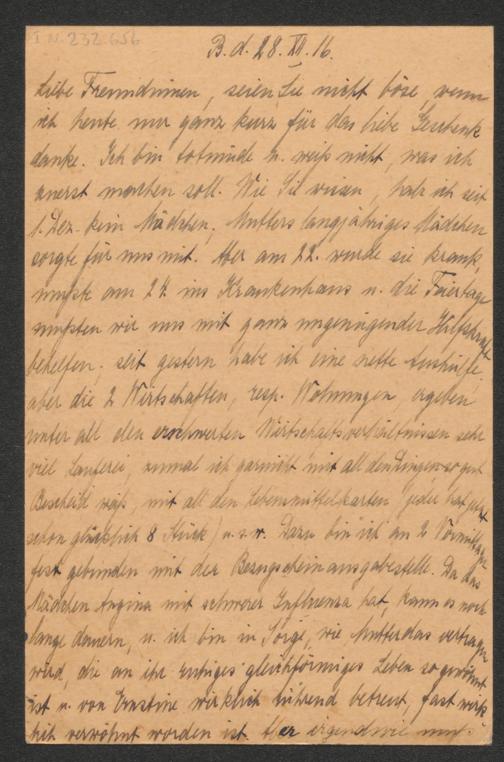 I N. 232.656
B. d. 28. XII. 16.
Liebe Freundinnen, seien Sie nicht böse, wenn
ich heute nur ganz kurz für das liebe Geschenk
danke. Ich bin totmüde u. weiß nicht, was ich
zuerst machen soll. Wie Sie wissen, hab ich seit
1. Dez. kein Mädchen. Mutters langjähriges Mädchen
sorgte für uns mit. Aber am 22. wurde sie krank,
mußte am 24. ins Krankenhaus u. die Feiertage
mußten wir uns mit ganz ungenügender Hilfskraft
behelfen; seit gestern habe ich eine nette Aushilfe
aber die 2 Wirtschaften, resp. Wohnungen, ergeben
unter all den erschwerten Wirtschaftsverhältnissen sehr
viel Lauferei, zumal ich garnicht mit all den Dingen so gut
Bescheid weiß, mit all den Lebensmittelkarten (jeder hat jetzt
schon glücklich 8 Stück) u.s.w. Dazu bin ich an 2 Vormittagen
fest gebunden mit der Bezugscheinausgabestelle. Da das
Mädchen Angina mit schwerer Influenza hat, kann es noch
lange dauern, u. ich bin in Sorge, wie Mutter das vertragen
wird, die an ihr ruhiges gleichförmiges Leben so gewöhnt
ist u. von Ernstine wirklich rührend betreut, fast wirk-
lich verwöhnt worden ist. Aber irgendwie muß